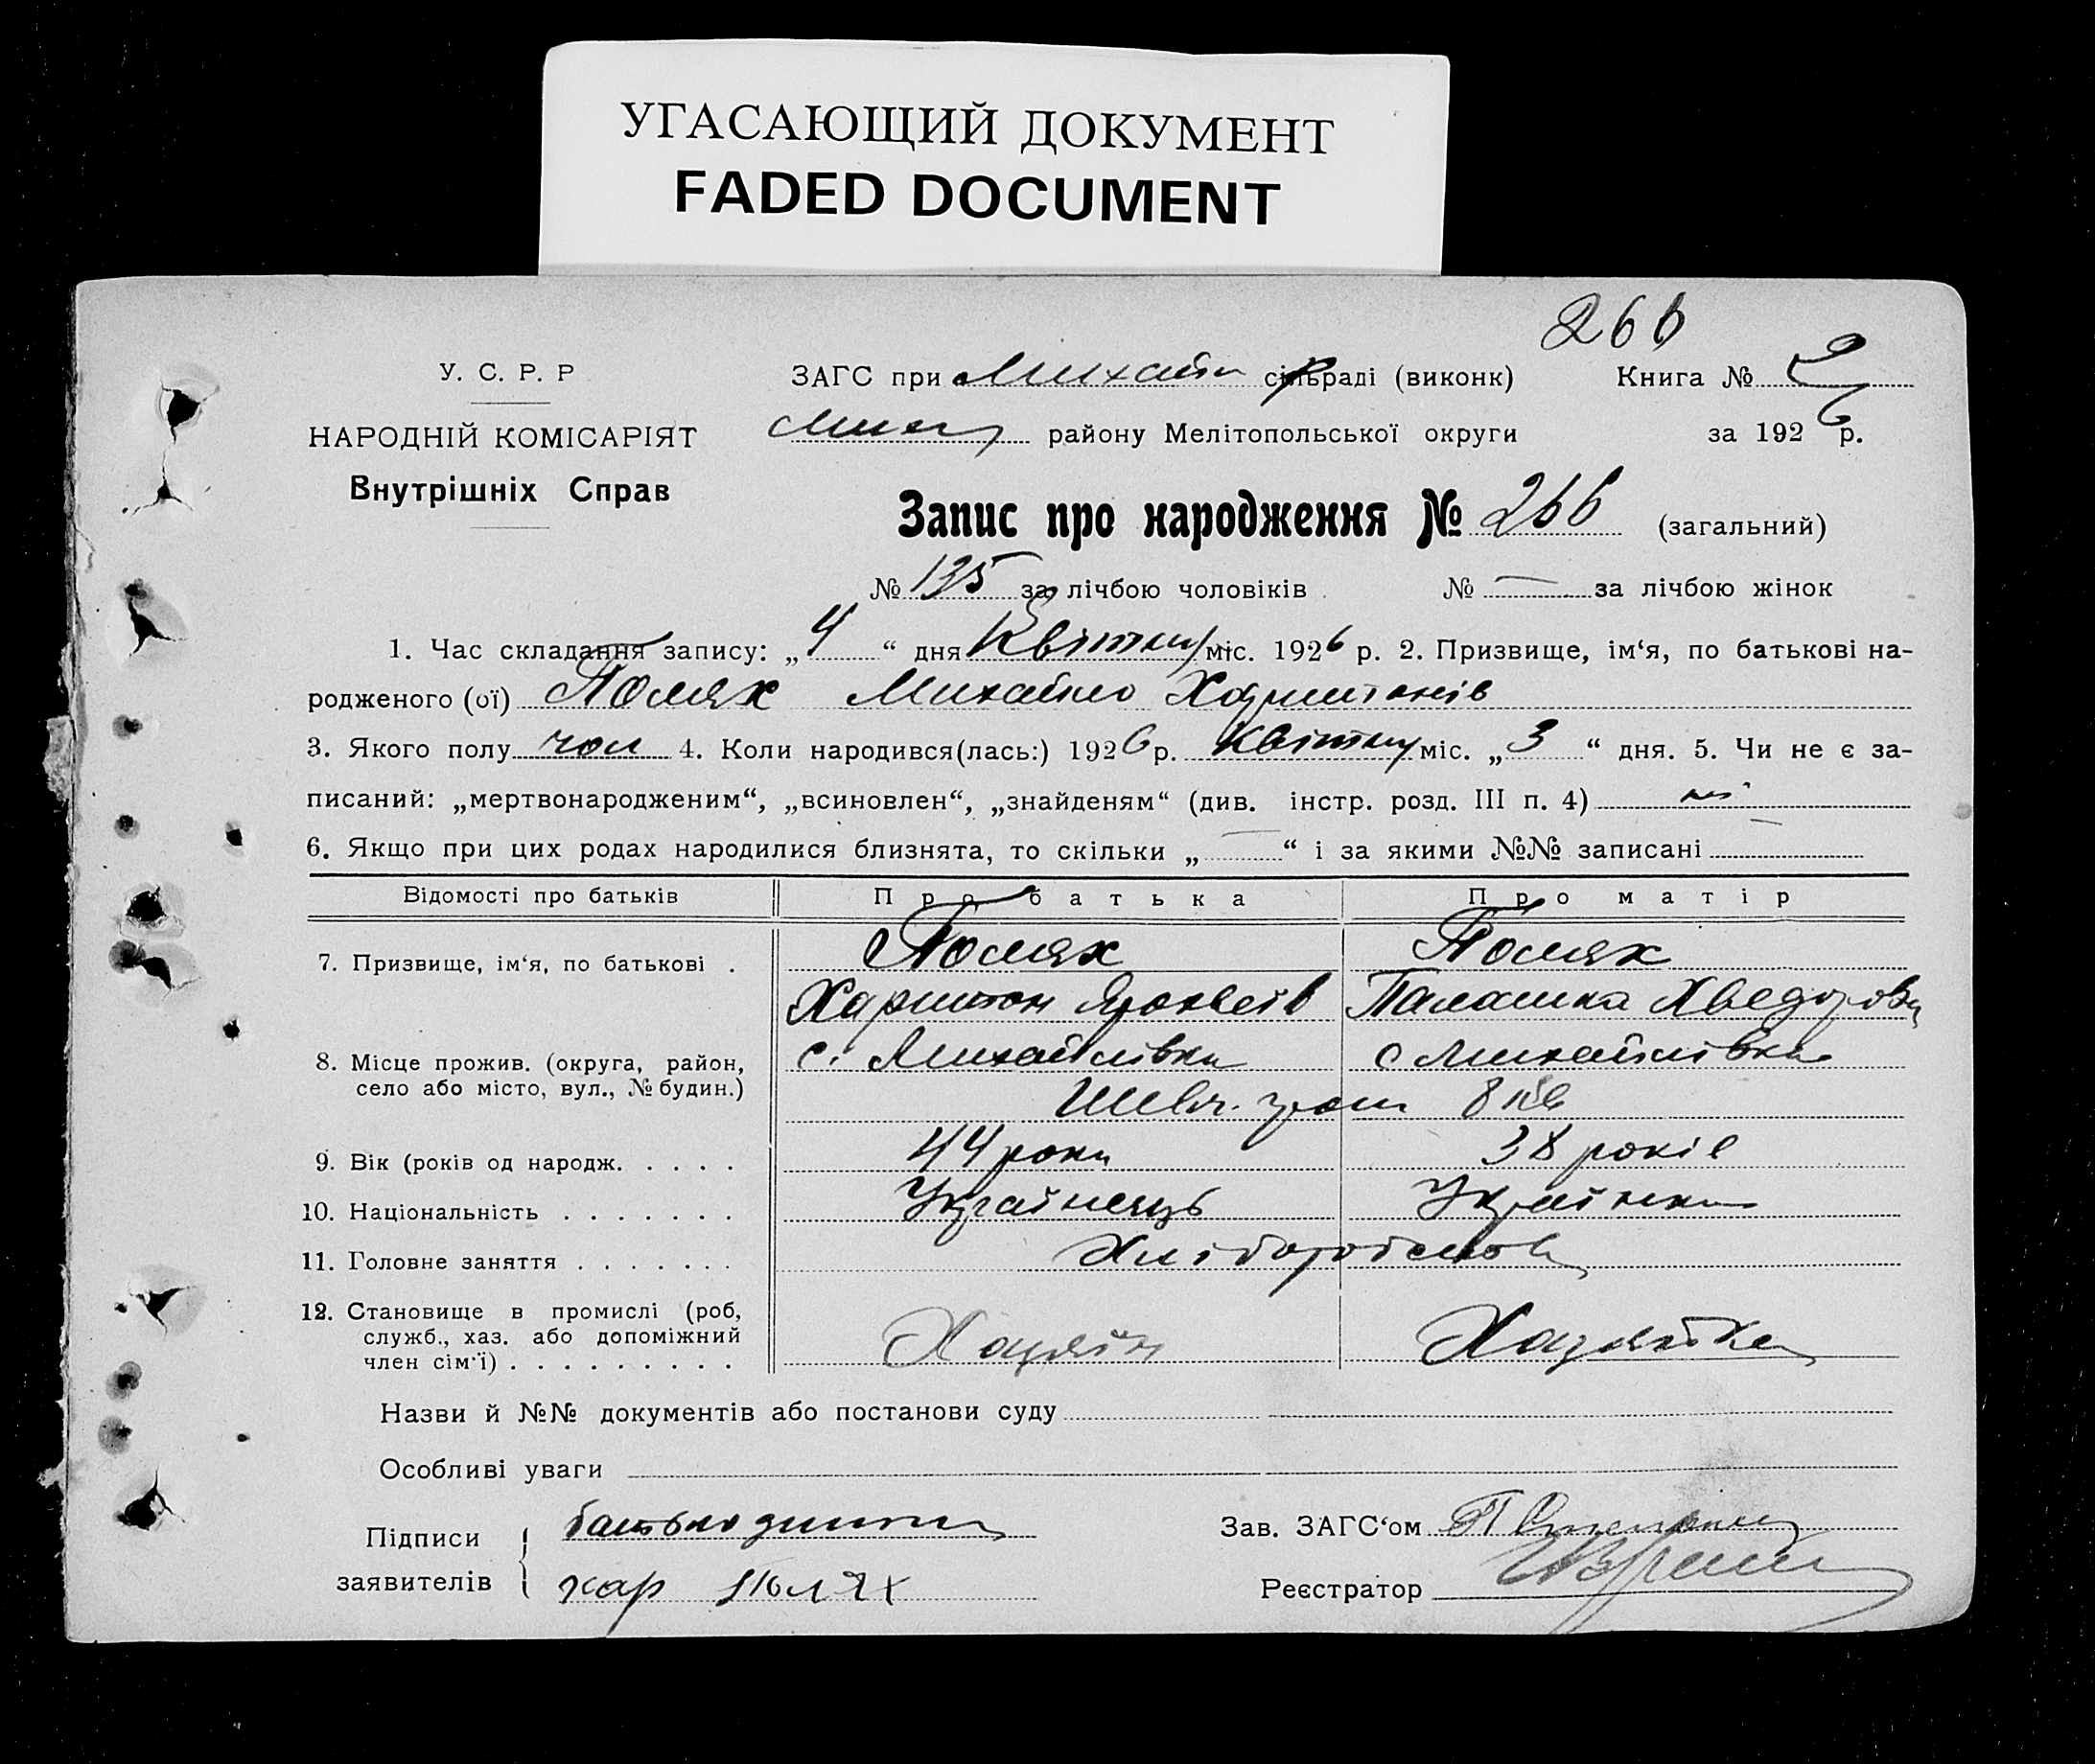 УГАСАЮЩИЙ ДОКУМЕНТ
FADED DOCUMENT
266
У. С. Р. Р
НАРОДНІЙ КОМІСАРІЯТ
Внутрішніх Справ
ЗАГС при Михайл сільраді (виконк) Книга № 2
Мих району Мелітопольської округи за 1926 р.
Запис про народження № 266 (загальний)
№ 135 за лічбою чоловіків № — за лічбою жінок
1. Час складання запису: „4“ дня Квітня міс. 1926 р. 2. Призвище, ім‘я, по батькові на-
родженого (ої) Полях Михайло Харитонів
3. Якого полу чол 4. Коли народився(лась:) 1926 р. Квітня міс. „3“ дня. 5. Чи не є за-
писаний: „мертвонародженим“, „всиновлен“, „знайденям“ (див. інстр. розд. III п. 4) ні
6. Якщо при цих родах народилися близнята, то скільки „—“ і за якими №№ записані —
Відомості про батьків Про батька Про матір
7. Призвище, ім‘я, по батькові . Полях Полях
Харитон Палашка Хведорова
8. Місце прожив. (округа, район, с. Михайлівка с Михайлівка
село або місто, вул., № будин.) Шевч. гром 8 кв
9. Вік (років од народж. . . . . 44 роки 38 років
10. Національність . . . . . . . Українець Українка
11. Головне заняття . . . . . . . Хліборобство
12. Становище в промислі (роб, Хазяїн Хазяйка
служб., хаз. або допоміжний
член сім‘ї) . . . . . . . . .
Назви й №№ документів або постанови суду
Особливі уваги
Підписи батько дитини Зав. ЗАГС‘ом
заявителів хар Полях Реєстратор